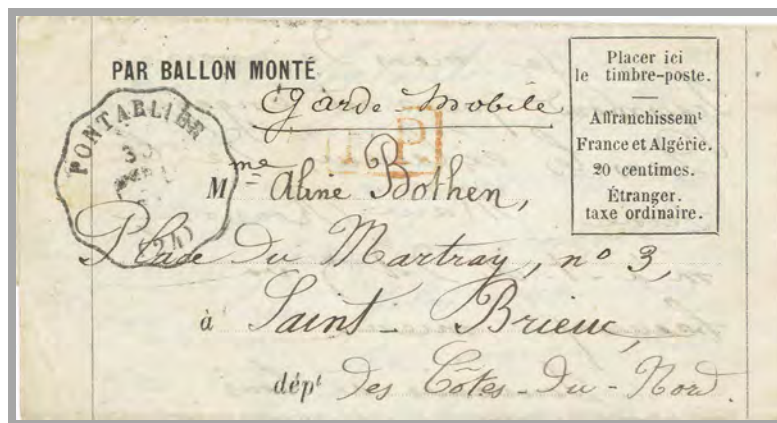 PAR BALLON MONTÉ
Garde-mobile
Placer ici
le timbre-poste.
Affranchissemt
France et Algérie.
20 centimes.
Étranger.
taxe ordinaire.
PONTARLIER
30
(24)
P.P.
Mme Aline Bothen,
Place du Martray, no 3,
à Saint-Brieuc,
dépt des Côtes-du-Nord.